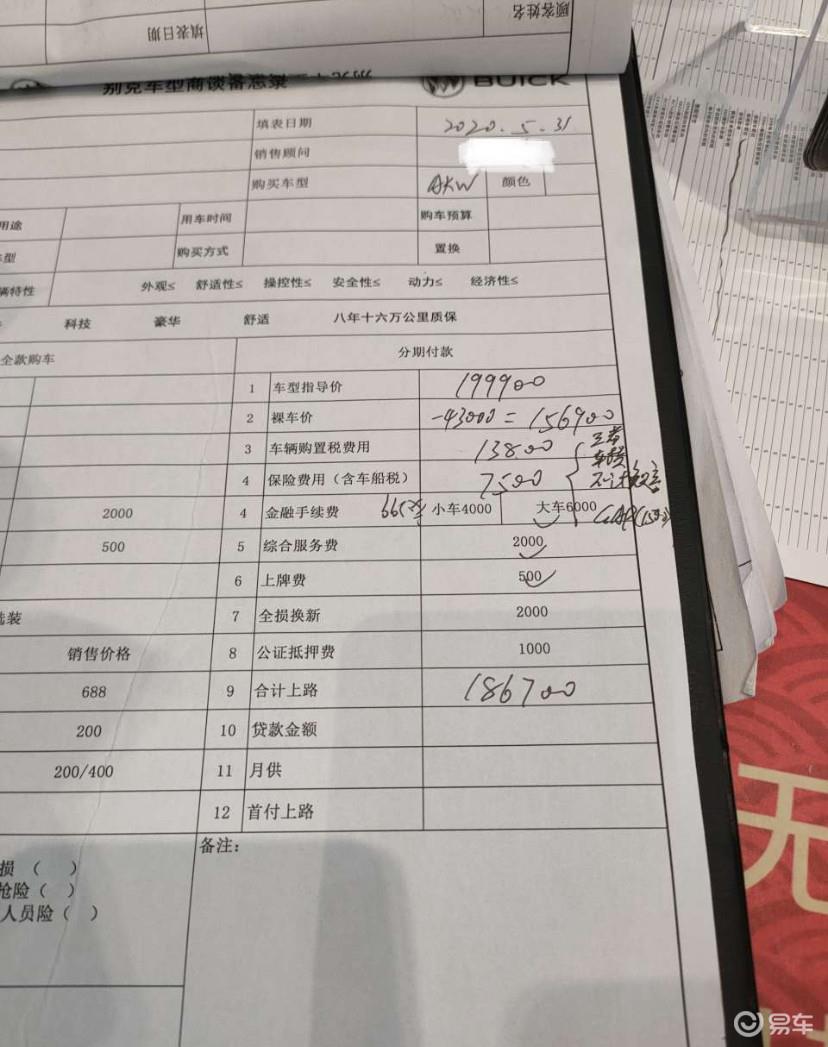 顾客姓名
填表日期
别克车型商谈备忘录 BUICK
填表日期 2020.5.31
销售顾问
购买车型 颜色
用途 用车时间 购车预算
车型 购买方式 置换
辆特性 外观≤ 舒适性≤ 操控性≤ 安全性≤ 动力≤ 经济性≤
科技 豪华 舒适 八年十六万公里质保
全款购车 分期付款
1 车型指导价 199900
2 裸车价 -43000 = 156900
3 车辆购置税费用 13800
4 保险费用（含车船税） 7500
2000 4 金融手续费 小车4000 大车6000
500 5 综合服务费 2000
6 上牌费 500
选装 7 全损换新 2000
销售价格 8 公证抵押费 1000
688 9 合计上路 186700
200 10 贷款金额
200/400 11 月供
12 首付上路
备注：
损（ ）
抢险（ ）
人员险（ ）
无
易车